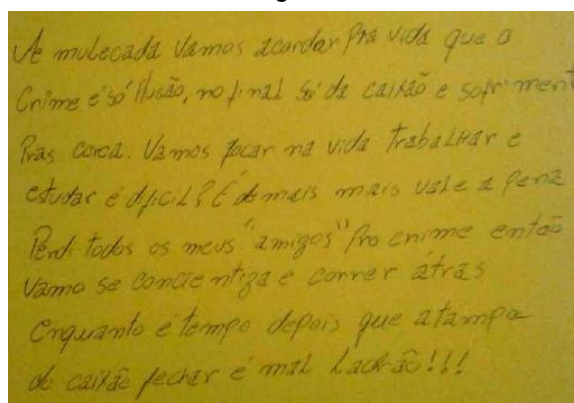 Ae mulecada vamos acordar pra vida que o
Crime é só ilusão, no final só da caixão e sofriment
Pras coroa. Vamos focar na vida trabalhar e
estudar é dificil? É demais mais vale a pena
Perdi todos os meus "amigos" pro crime então
vamo se concientiza e correr átras
enquanto é tempo depois que a tampa
do caixão fechar é mal Ladrão!!!